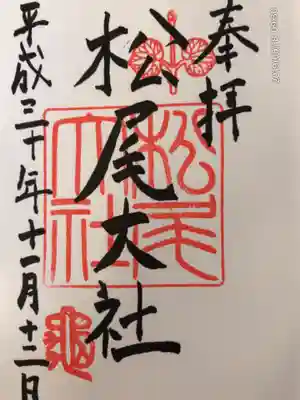 奉拝
松尾大社
松尾大社
平成三十年十一月十二日